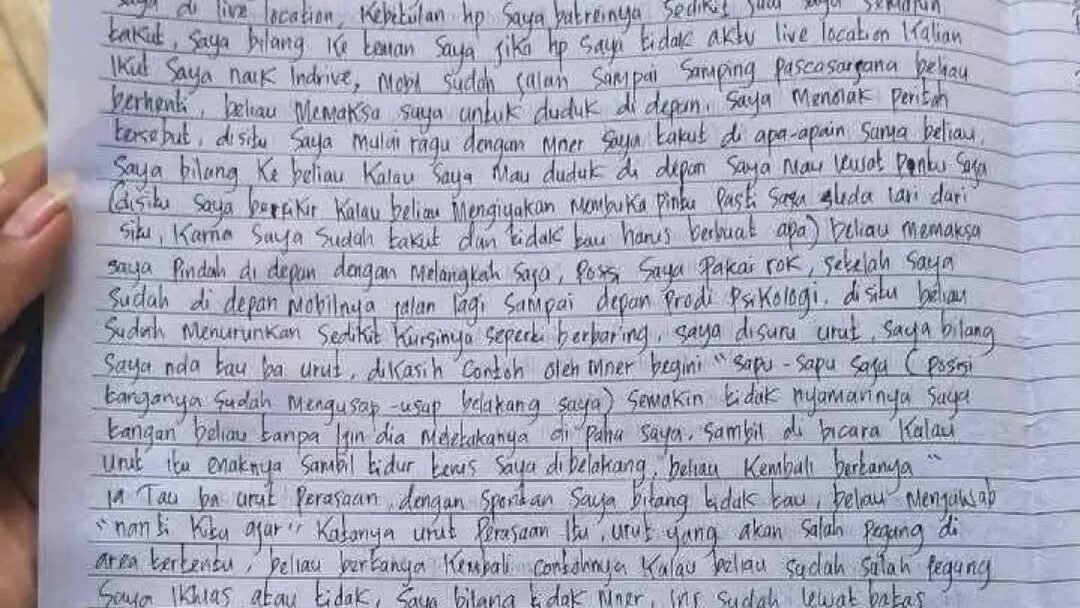 saya di live location, Kebetulan hp saya batreinya sedikit jadi saya semakin
takut, saya bilang ke teman saya jika hp saya tidak aktv live location Kalian
Ikut saya naik Indrive, mobil sudah jalan sampai samping pascasarjana beliau
berhenti, beliau memaksa saya untuk duduk di depan, saya menolak perintah
tersebut, disitu saya mulai ragu dengan Mner saya takut di apa-apain sama beliau,
saya bilang ke beliau kalau saya mau duduk di depan saya mau lewat pintu saja
(disitu saya berfikir kalau beliau mengiyakan membuka pintu pasti saya suda lari dari
situ, karna saya sudah takut dan tidak tau harus berbuat apa) beliau memaksa
saya pindah di depan dengan melangkah saja, posisi saya pakai rok, setelah saya
sudah di depan mobilnya jalan lagi sampai depan prodi psikologi, disitu beliau
sudah menurunkan sedikit kursinya seperti berbaring, saya disuru urut, saya bilang
saya nda tau ba urut, dikasih contoh oleh Mner begini "sapu-sapu saja (posisi
tanganya sudah mengusap-usap belakang saya) semakin tidak nyamannya saya
tangan beliau tanpa Izin dia meletakanya di paha saya, sambil di bicara kalau
urut itu enaknya sambil tidur terus saya dibelakang, beliau kembali bertanya "
ia Tau ba urut perasaan, dengan spontan saya bilang tidak tau, beliau menjawab
"nanti kita ajar" katanya urut perasaan itu, urut yang akan salah pegang di
area tertentu, beliau bertanya kembali contohnya kalau beliau sudah salah pegang
saya ikhlas atau tidak, saya bilang tidak Mner, ini sudah lewat batas